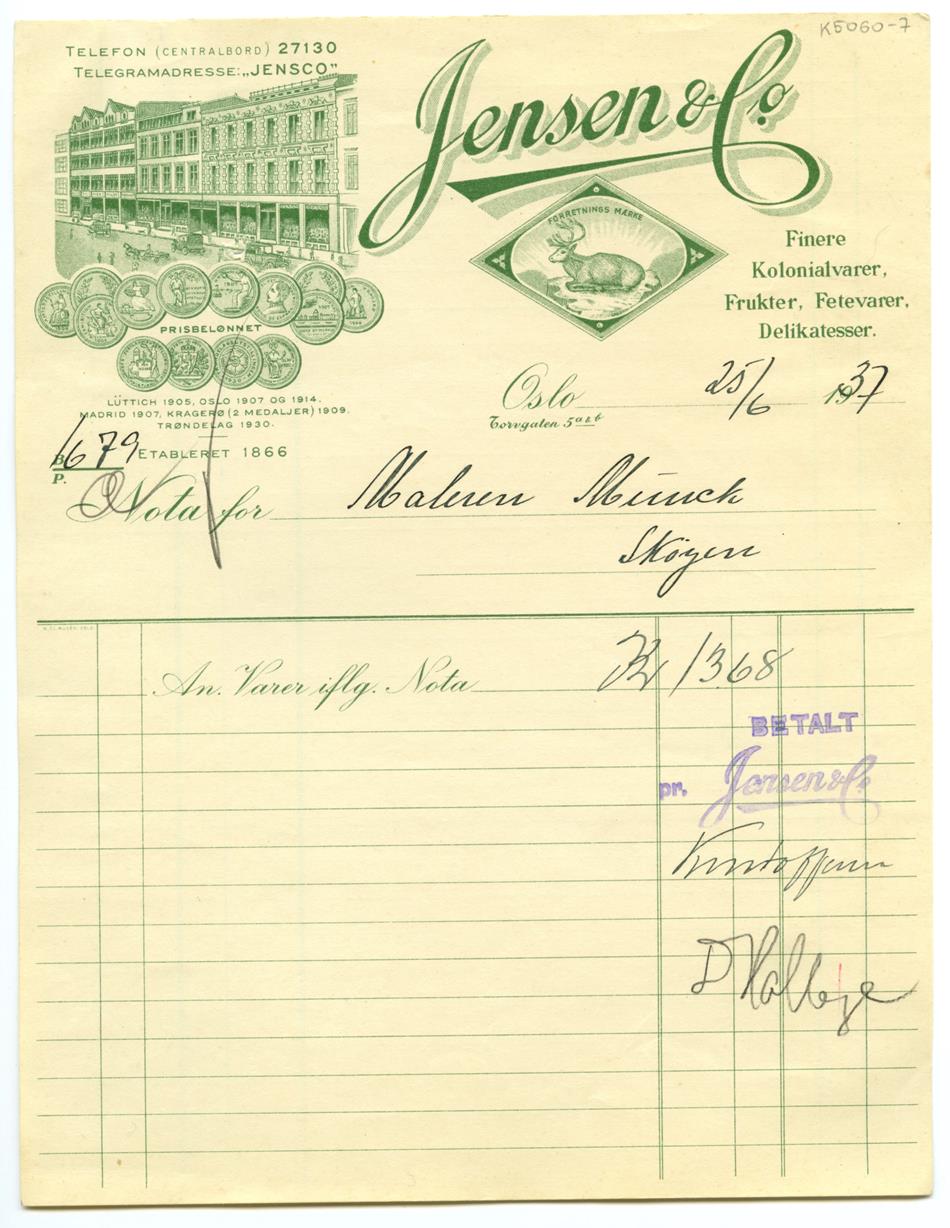 K5060-7
TELEFON (CENTRALBORD) 27130
TELEGRAMADRESSE: „JENSCO"
Jensen & Co.
FORRETNINGS MÆRKE
Finere
Kolonialvarer,
Frukter, Fetevarer,
Delikatesser.
PRISBELØNNET
LÜTTICH 1905, OSLO 1907 OG 1914.
MADRID 1907, KRAGERØ (2 MEDALJER) 1909.
TRØNDELAG 1930.
Oslo 25/6 1937
Torvgaten 5 a & b
B. 1679
P.
ETABLERET 1866
Nota for Maleren Munck
Skøyen
An. Varer iflg. Nota Kr 13.68
BETALT
pr. Jensen & Co.